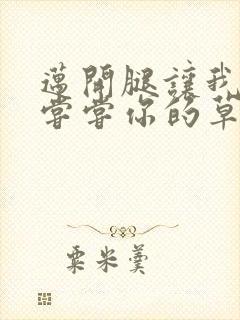 邁開腿讓我
嘗嘗你的草
粟米羹